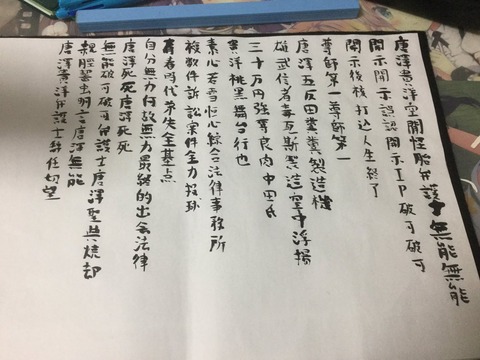 唐澤貴洋空開性脂弁護士無能無能
開示開示誤認開示IP破可破可
開示後後打込人生終了
尊師第一尊師第一
唐澤五反田糞糞製造機
雄武信者毒瓦斯製造空中浮揚
三十万円強奪良肉中田氏
黒澤桃黒舞台行也
素心若雪恒心綜合法律事務所
複数件訴訟案件全力投球
青春時代茶失全基点
自分無力何故無力最終的出会法律
唐澤死死唐澤死死
無能破可破可弁護士唐澤聖典焼却
親脛齧虫明言唐澤無能
唐澤貴洋弁護士辞任切望